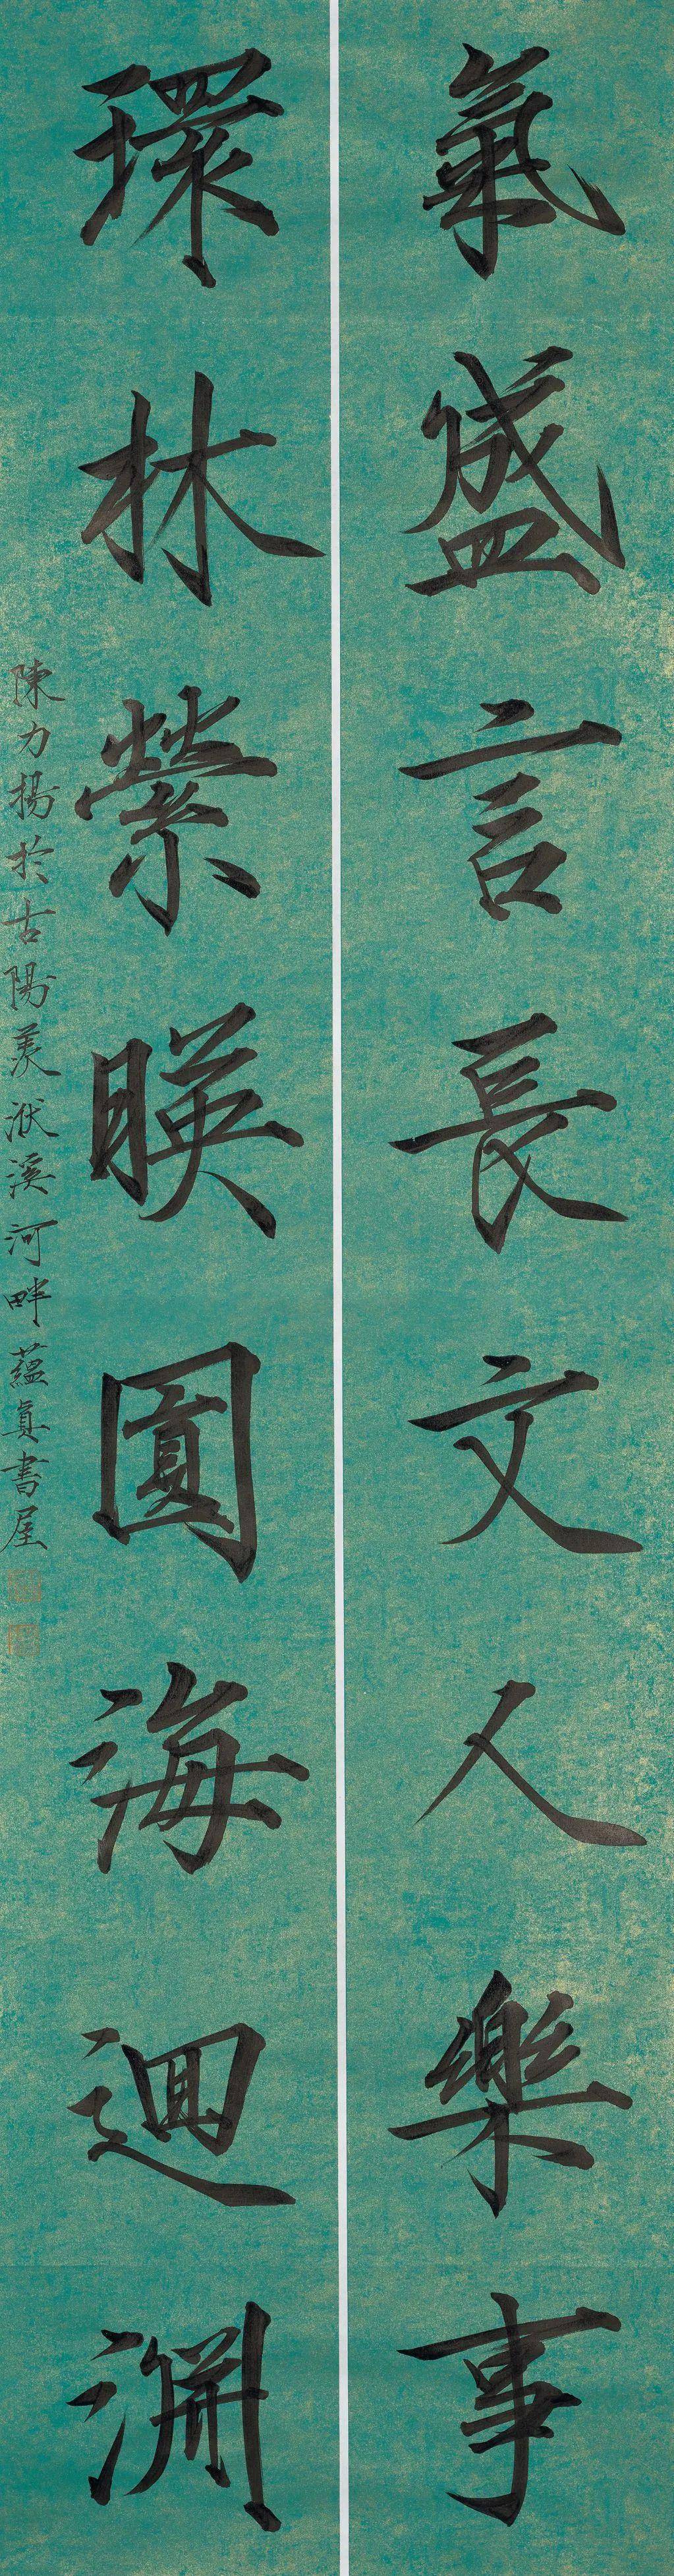 氣盛言長文人樂事
環林縈暎圓海迴淵
陳力揚於古陽羨洑溪河畔蘊真書屋